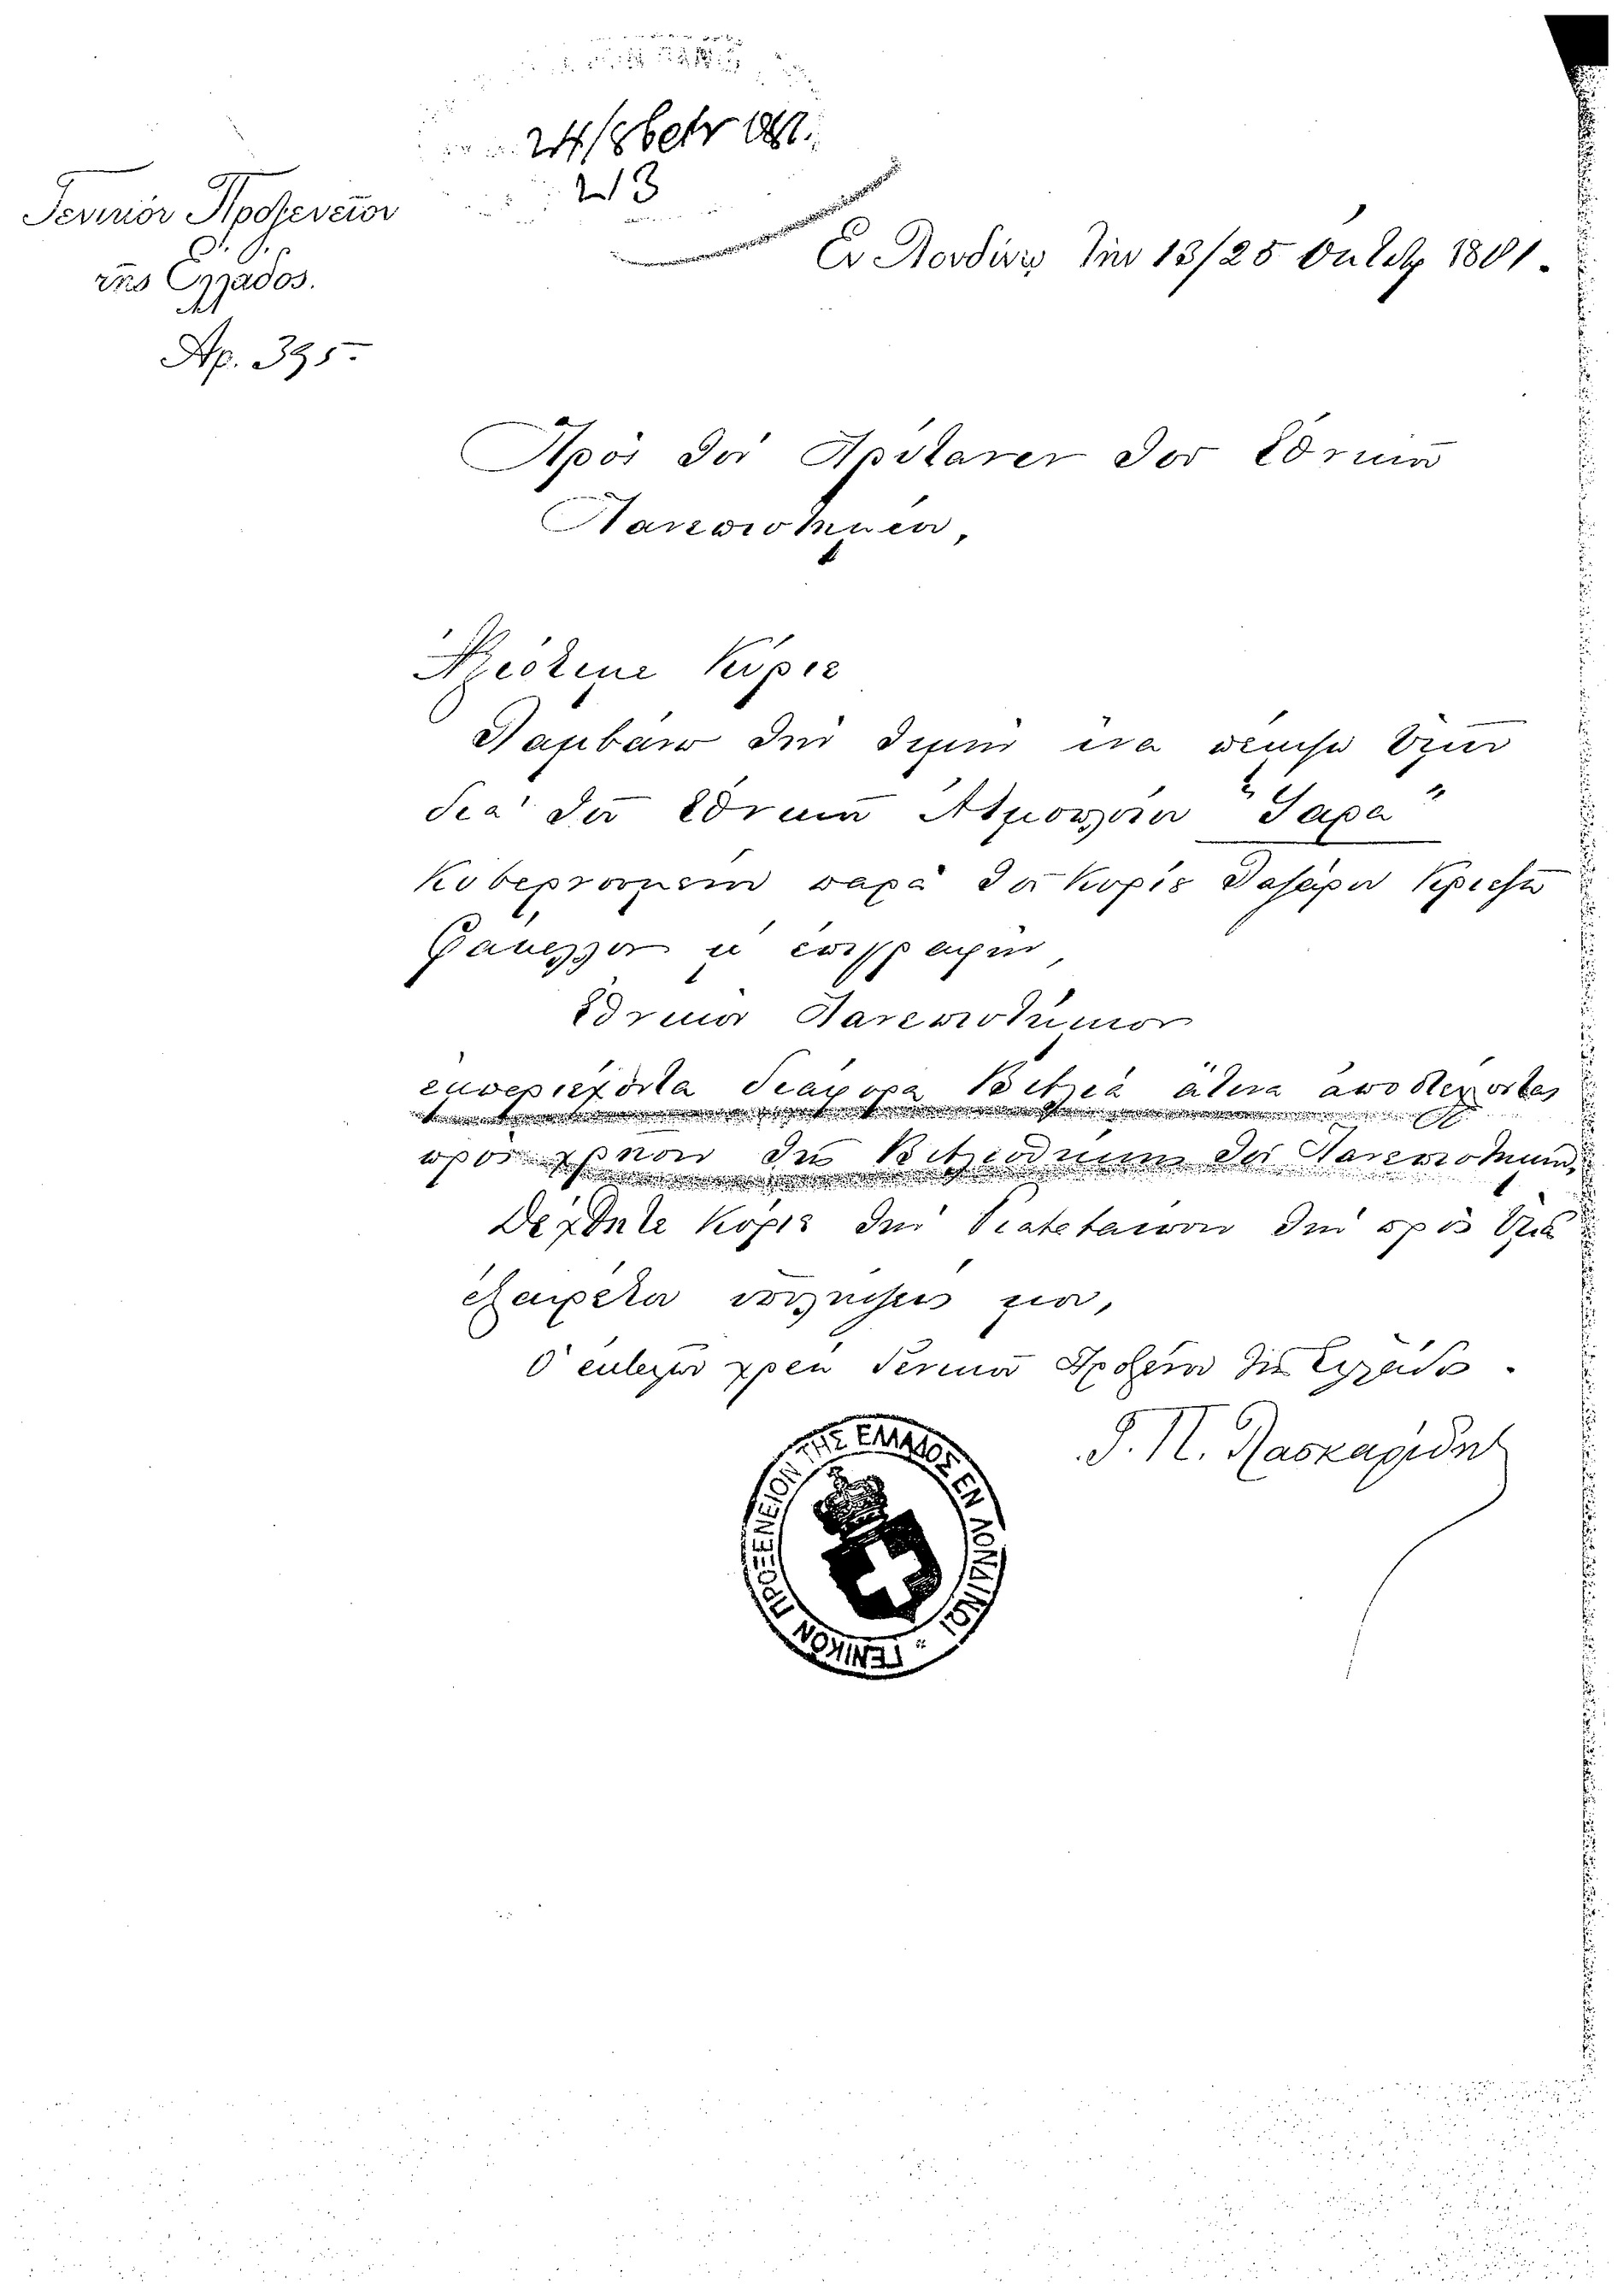 24/8βρ 1881.
213
Γενικὸν Προξενεῖον
τῆς Ἑλλάδος.
Αρ. 395
Ἐν Λονδίνῳ τὴν 13/25 Ὀκτωβ 1881.
Πρὸς τὸν Πρύτανιν τοῦ Ἐθνικοῦ
Πανεπιστημίου,
Ἀξιότιμε Κύριε
Λαμβάνω τὴν τιμὴν ἵνα πέμψω Ὑμῖν
διὰ τοῦ Ἐθνικοῦ Ἀτμοπλοίου "Σαρα"
κυβερνουμένου παρὰ τοῦ Κυρίου
μ' ἐπιγραφὴν,
Ἐθνικὸν Πανεπιστήμιον
ἐμπεριέχοντα διάφορα Βιβλία ἅτινα ἀποστέλλονται
πρὸς χρῆσιν τῆς Βιβλιοθήκης τοῦ Πανεπιστημίου,
Δέχθητε Κύριε τὴν διαβεβαίωσιν τῆς πρὸς Ὑμᾶς
ἐξαιρέτου ὑπολήψεώς μου,
Ὁ ἐκτελῶν χρέη Γενικοῦ Προξένου τῆς Ἑλλάδος.
Π. Πασκαλίδης
ΓΕΝΙΚΟΝ ΠΡΟΞΕΝΕΙΟΝ ΤΗΣ ΕΛΛΑΔΟΣ ΕΝ ΛΟΝΔΙΝΩΙ